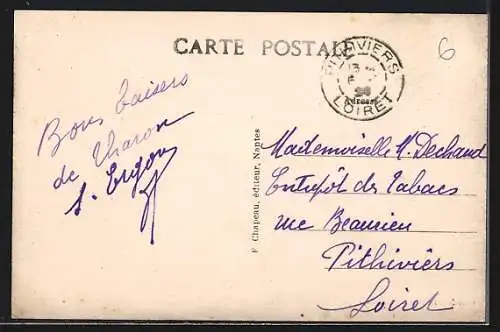 CARTE POSTALE
PITHIVIERS
LOIRET
6
Bons baisers
de Tharon
F. Chapeau, éditeur, Nantes
Mademoiselle M. Dechaud
Entrepôt des Tabacs
rue Beaurieu
Pithiviers
Loiret